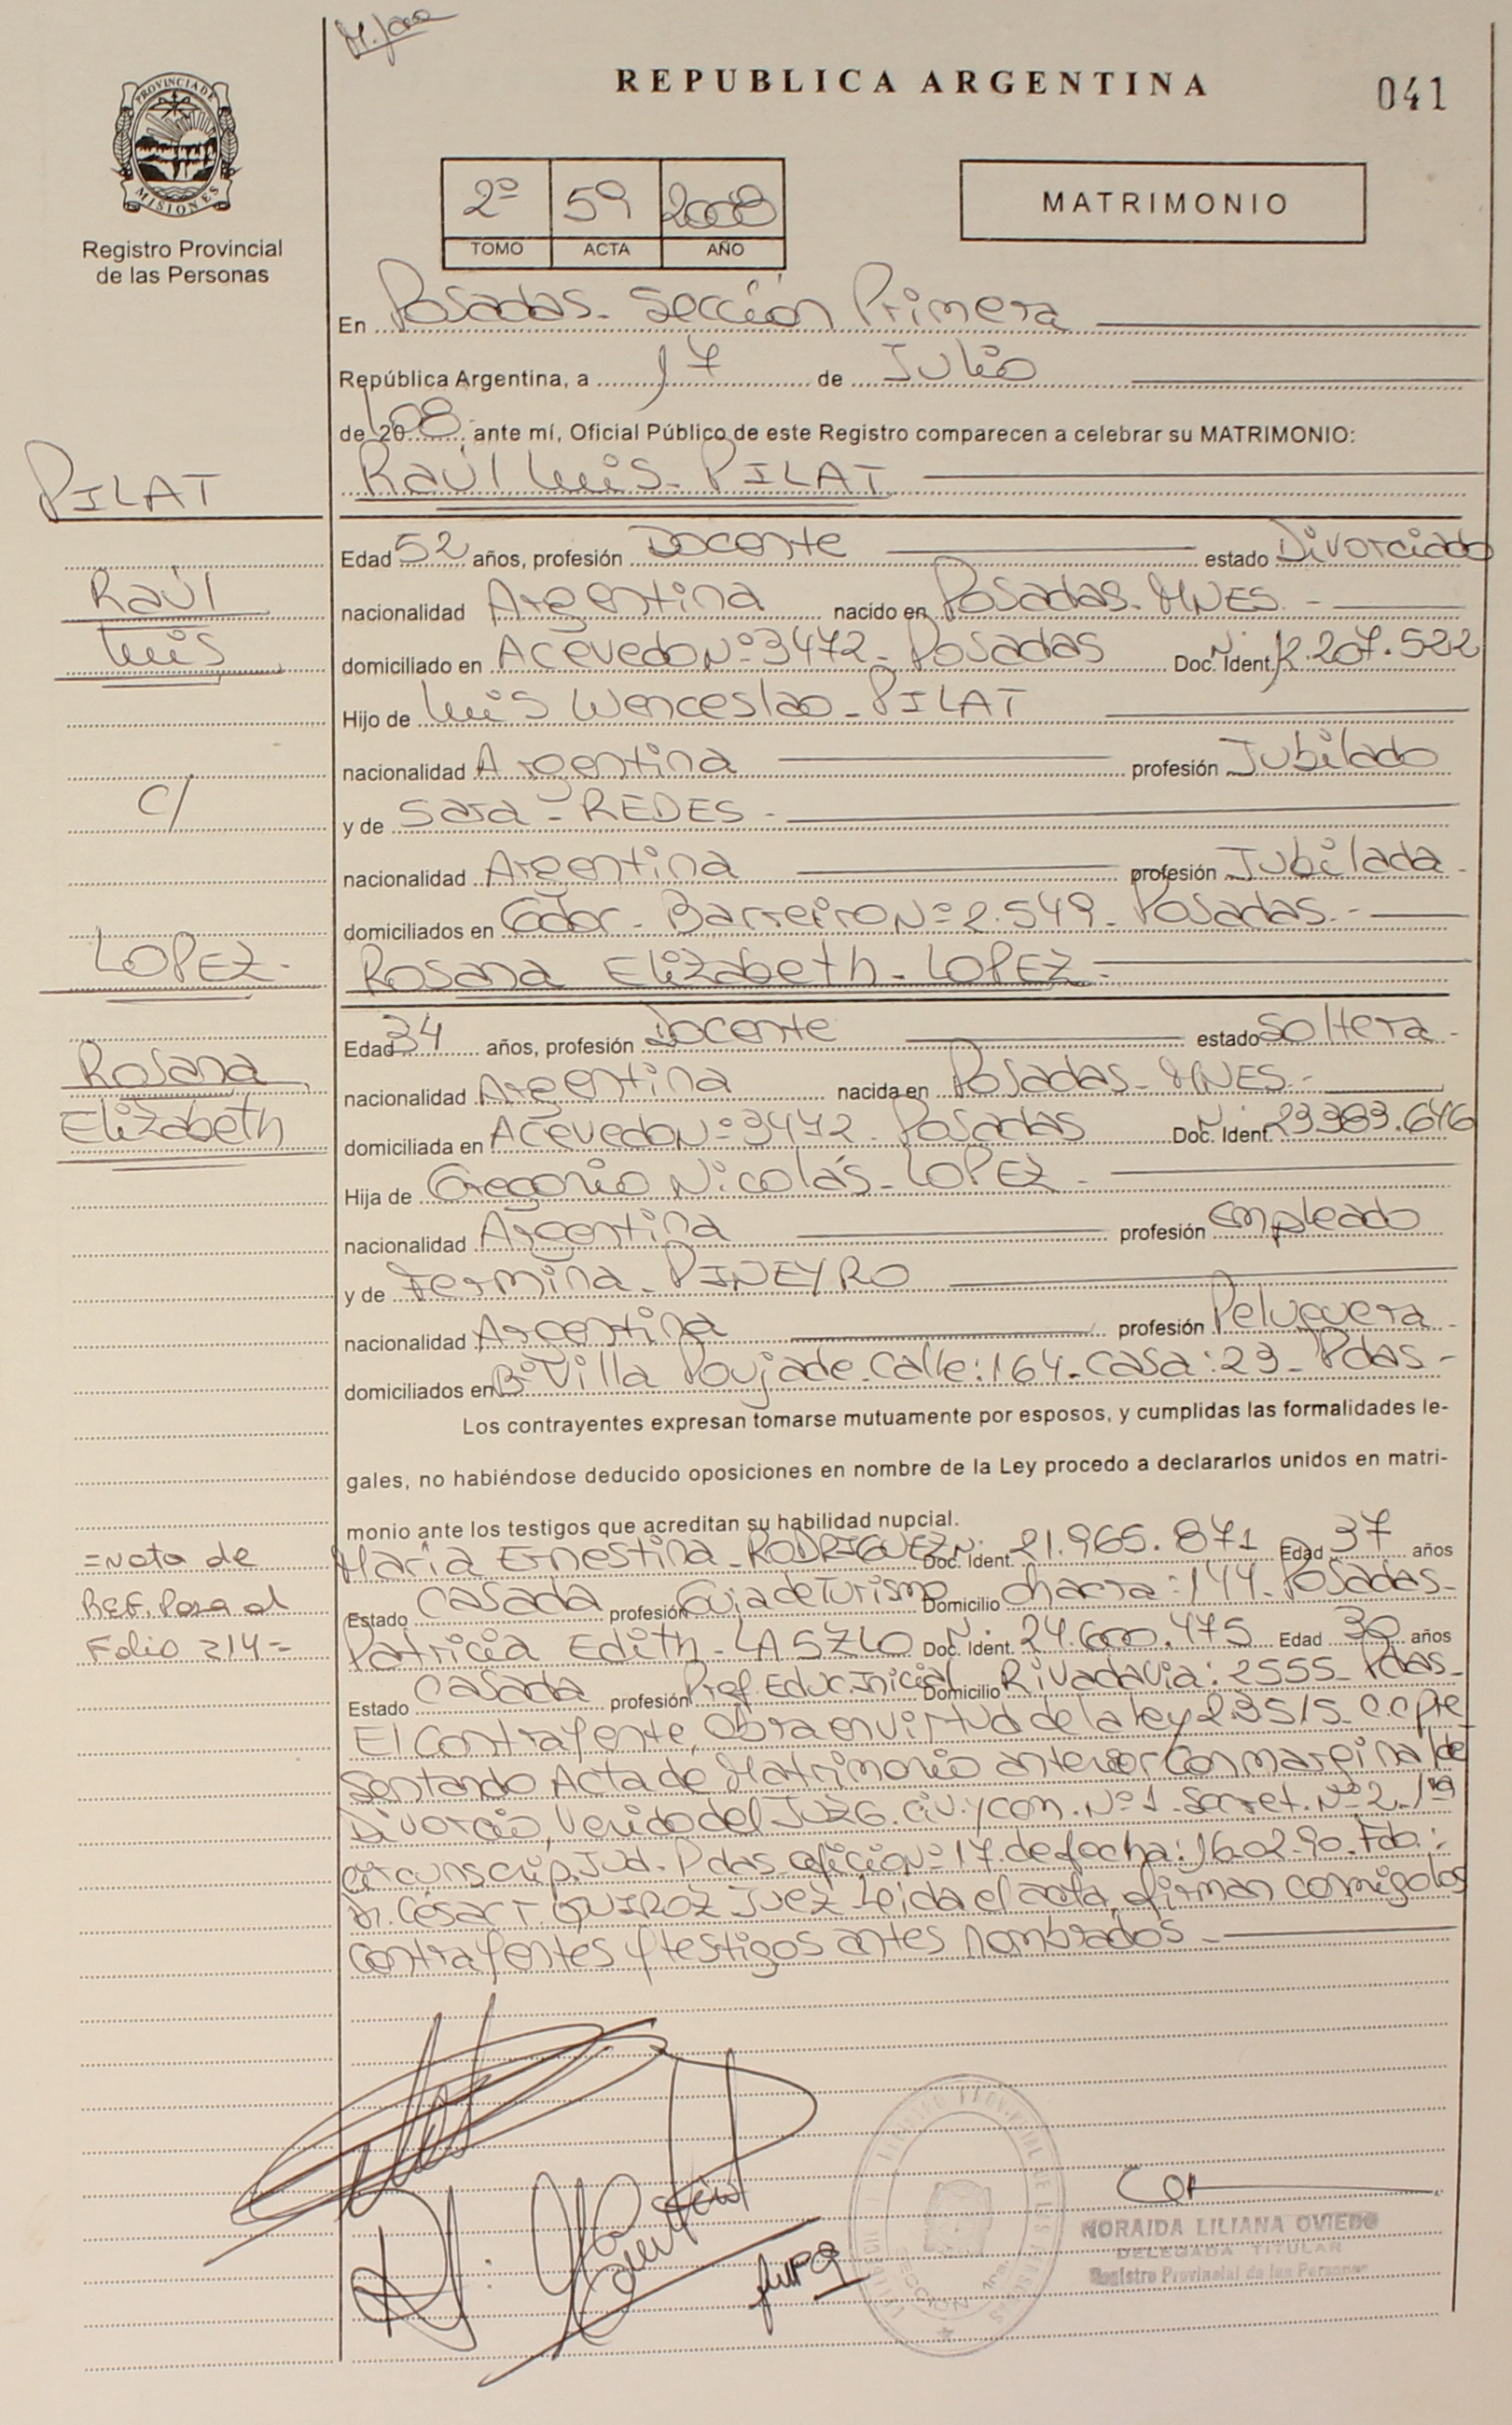 M. Jara
REPUBLICA ARGENTINA
041
PROVINCIA DE
MISIONES
Registro Provincial
de las Personas
2º 59 2008
TOMO ACTA AÑO
MATRIMONIO
En Posadas- Sección Primera
República Argentina, a 17 de Julio
de 2008, ante mí, Oficial Público de este Registro comparecen a celebrar su MATRIMONIO:
PILAT
Raúl Luis- PILAT
Edad 52 años, profesión Docente estado Divorciado
Raúl
nacionalidad Argentina nacido en Posadas- MNES.-
Luis
domiciliado en Acevedo Nº 3472- Posadas Doc. Ident. N: 12.207.522
Hijo de Luis Wenceslao- PILAT
nacionalidad Argentina profesión Jubilado
C/
y de Sara- REDES-
nacionalidad Argentina profesión Jubilada-
domiciliados en Gdor- Barreiro Nº 2.549- Posadas.-
LOPEZ-
Rosana Elizabeth- LOPEZ-
Edad 34 años, profesión Docente estado Soltera-
Rosana
nacionalidad Argentina nacida en Posadas- MNES.-
Elizabeth
domiciliada en Acevedo Nº 3472- Posadas Doc. Ident. N: 23.383.646
Hija de Gregorio Nicolás- LOPEZ-
nacionalidad Argentina profesión empleado
y de Fermina- PINEYRO
nacionalidad Argentina profesión Peluquera-
domiciliados en Bº Villa Poujade- Calle: 164- Casa: 23- Pdas-
Los contrayentes expresan tomarse mutuamente por esposos, y cumplidas las formalidades le-
gales, no habiéndose deducido oposiciones en nombre de la Ley procedo a declararlos unidos en matri-
monio ante los testigos que acreditan su habilidad nupcial.
=Nota de
Ref. Pasa al
Folio 214=
María Ernestina- RODRIGUEZ Doc. Ident. N: 21.965.871 Edad 37 años
Estado Casada profesión Guia de Turismo Domicilio Chacra: 144- Posadas-
Patricia Edith- LASZLO Doc. Ident. N: 24.600.475 Edad 30 años
Estado Casada profesión Prof. Educ. Inicial Domicilio Rivadavia: 2555- Pdas-
El Contrayente, Obra en virtud de la ley 2.3515- C.C pre
sentando Acta de Matrimonio anterior Con marginal de
Divorcio, Venido del Juzg. Civ. y Com. Nº 1- Secret. Nº 2- 1ra
circunscrip. Jud. Pdas- oficio Nº 17. de fecha: 16.02.90. Fdo:
Dr. César T. QUIROZ Juez- Leida el acta, firman conmigo los
contrayentes y testigos antes nombrados-
NORAIDA LILIANA OVIEDO
DELEGADA TITULAR
Registro Provincial de las Personas